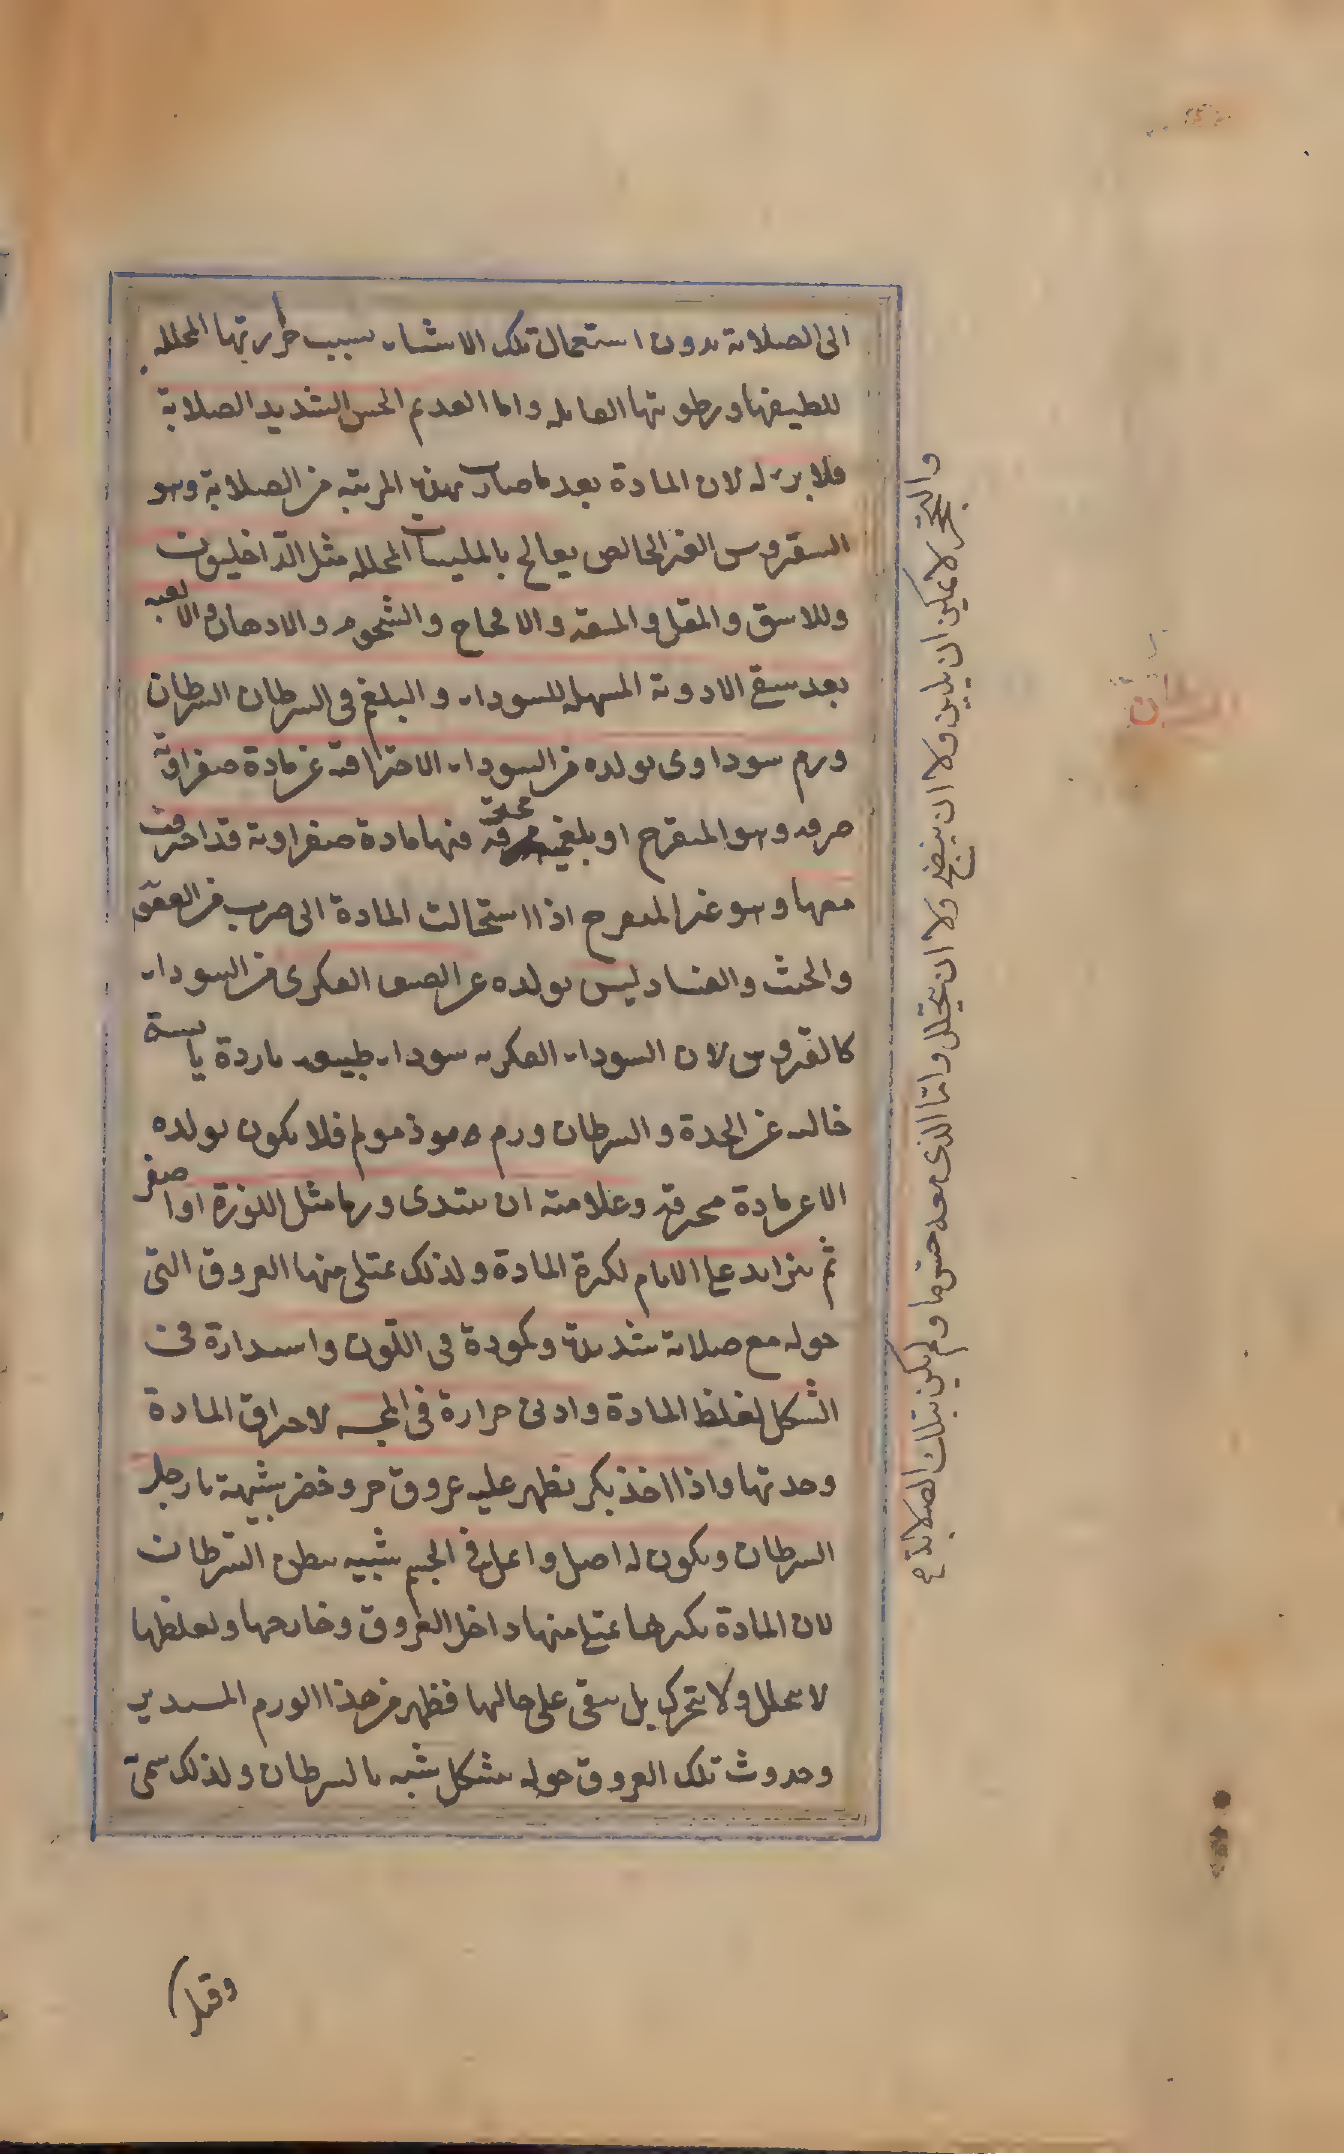 الى الصلابة بدون استعمال تلك الاشياء بسبب حرارتها المحللة
للطيفها ورطوبتها العاملة واما العديم الحس الشديد الصلابة
فلا برء له لان المادة بعد ما صارت بهذه المرتبة من الصلابة وهو
السقروس الغير الخالص يعالج بالملينات المحللة مثل الداخليون
وللاشق والمقل والميعة والامخاخ والشحوم والادهان والالعبة
بعد سقي الادوية المسهلة للسوداء والبلغم في السرطان السرطان
ورم سوداوى تولده من السوداء الاحتراقية عن مادة صفراوية
صرفة وهو المتقرح او بلغمية محترقة فيها مادة صفراوية قد احترقت
معها وهو غير المتقرح اذا استحالت المادة الى ضرب من العفن
والخبث والفساد ليس تولده عن الصنف العكرى من السوداء
كالسقروس لان السوداء العكرية سوداء طبيعية باردة يابسة
خالية عن الحدة والسرطان ورم موذ مولم فلا يكون تولده
الا عن مادة محرقة وعلامته ان يبتدى ورما مثل اللوزة او اصغر
ثم يتزايد على الايام لكثرة المادة ولذلك يمتلي منها العروق التى
حوله مع صلابة شديدة وكمودة فى اللون واستدارة في
الشكل لغلظ المادة وادنى حرارة فى المجسة لاحراق المادة
وحدتها واذا اخذ يكبر تظهر عليه عروق حمر وخضر شبيهة بارجل
السرطان ويكون له اصل واغل فى الجسم شبيه ببطن السرطان
لان المادة بكثرتها يمتلي منها داخل العروق وخارجها ولغلظها
لا يتحلل ولا يتحرك بل يبقى على حالها فظهر من هذا الورم المستدير
وحدوث تلك العروق حوله بشكل شبيه بالسرطان ولذلك سمى
وقيل
والتحجر لا يمكن ان يلين ولا ان ينضج ولا ان يتحلل واما الذى معه حس ما ولم يكن بتلك الصلابة
السرطان